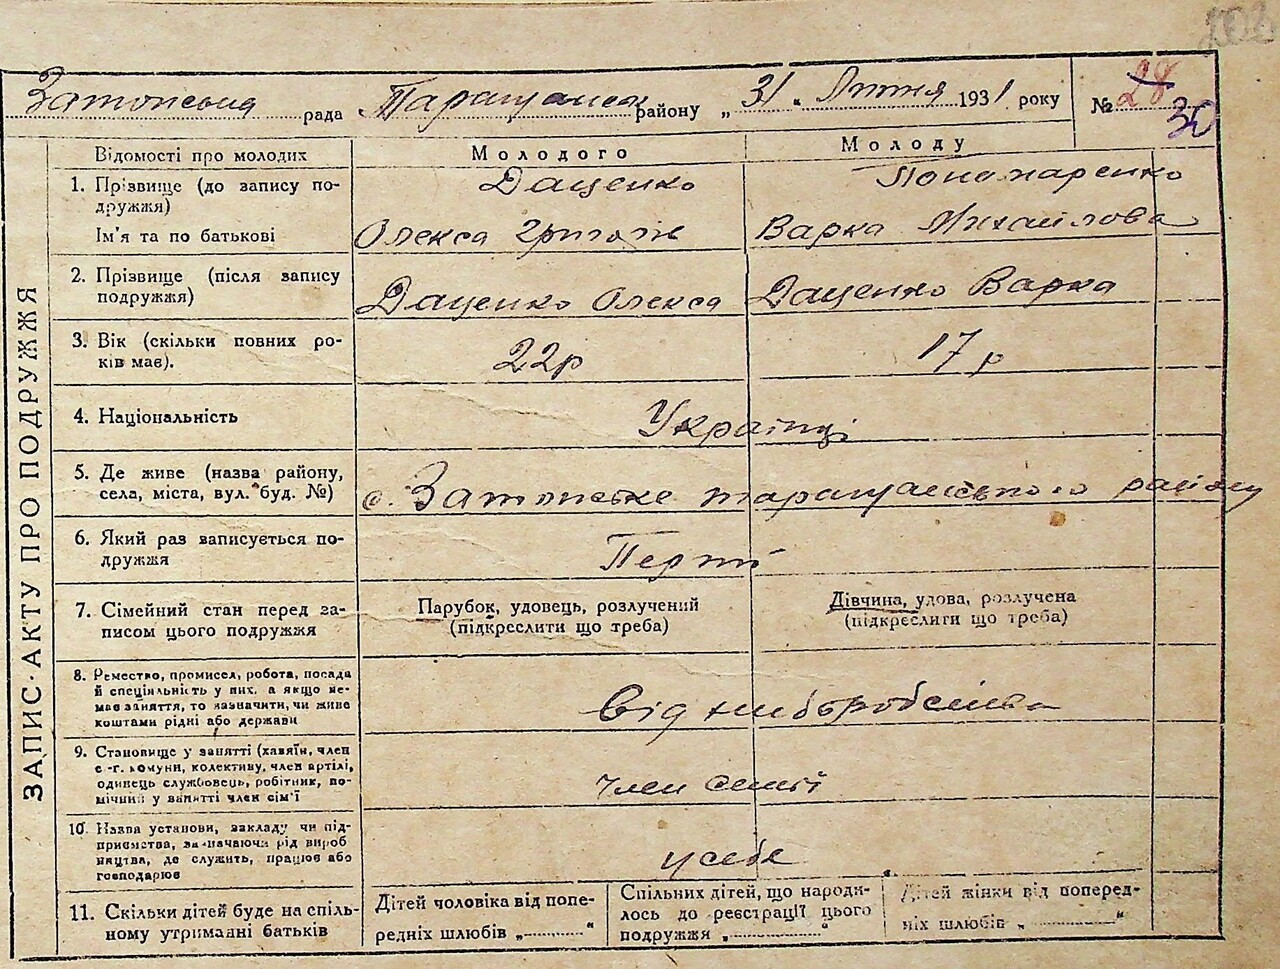 202
Затонська рада Таращанськ району „31„ Липня 1931 року № 28
30
ЗАПИС·АКТУ ПРО ПОДРУЖЖЯ
Відомості про молодих Молодого Молоду
1. Прізвище (до запису по- Даценко Пономаренко
дружжя)
Ім'я та по батькові Олекса Григорів Варка Михайлова
2. Прізвище (після запису
подружжя) Даценко Олекса Даценко Варка
3. Вік (скільки повних ро- 22р 17 р
ків має).
4. Національність Українці
5. Де живе (назва району,
села, міста, вул. буд. №) с. Затонське таращанського району
6. Який раз записується по-
дружжя Перший
7. Сімейний стан перед за- Парубок, удовець, розлучений Дівчина, удова, розлучена
писом цього подружжя (підкреслити що треба) (підкреслити що треба)
8. Ремество, промисел, робота, посада
й спеціяльність у них, а якщо не-
має заняття, то зазначити, чи живе Від хліборобства
коштами рідні або держави
9. Становище у занятті (хазяїн, член
с-г. комуни, колективу, член артілі,
одинець службовець, робітник, по- член сем'ї
мічний у занятті член сім'ї
10. Назва установи, закладу чи під-
приємства, зазначаючи рід вироб
ництва, де служить, працює або у себе
господарює
11. Скільки дітей буде на спіль- Дітей чоловіка від попе- Спільних дітей, що народи- Дітей жінки від поперед-
ному утриманні батьків редніх шлюбів „ “ лось до реєстрації цього ніх шлюбів „ “
подружжя „ “